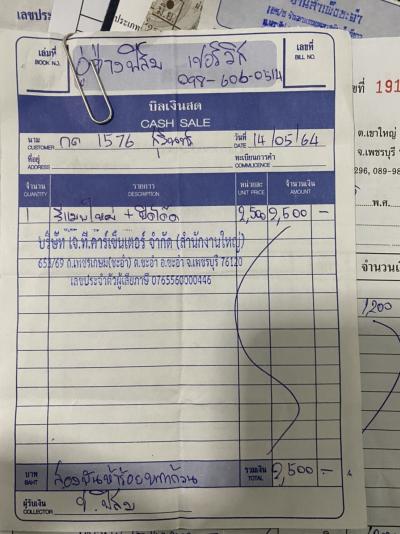 เลขประ
ประเภท
เล่มที่
BOOK NO.
อู่ช่างปีลิบ เซอร์วิส
098-606-0514
เลขที่
BILL NO.
บิลเงินสด
CASH SALE
นาม
CUSTOMER
กด 1576 สุรินทร์
วันที่
DATE
14/05/64
ที่อยู่
ADDRESS
ทะเบียนการค้า
COMMUCENCE
จำนวน
QUANTITY
รายการ
DESCRIPTION
หน่วยละ
UNIT PRICE
จำนวนเงิน
AMOUNT
1
2,500 2,500 -
บริษัท เจ.ที.คาร์เซ็นเตอร์ จำกัด (สำนักงานใหญ่)
653/69 ถ.เพชรเกษม(ชะอำ) ต.ชะอำ อ.ชะอำ จ.เพชรบุรี 76120
เลขประจำตัวผู้เสียภาษี 0765560000446
บาท
BAHT
สองพันห้าร้อยบาทถ้วน
รวมเงิน
TOTAL
2,500 -
ผู้รับเงิน
COLLECTOR
ที่ 191
ต.เขาใหญ่
จ.เพชรบุรี
296, 089-98
พ.ศ.
จำนวนเงิ
1,200